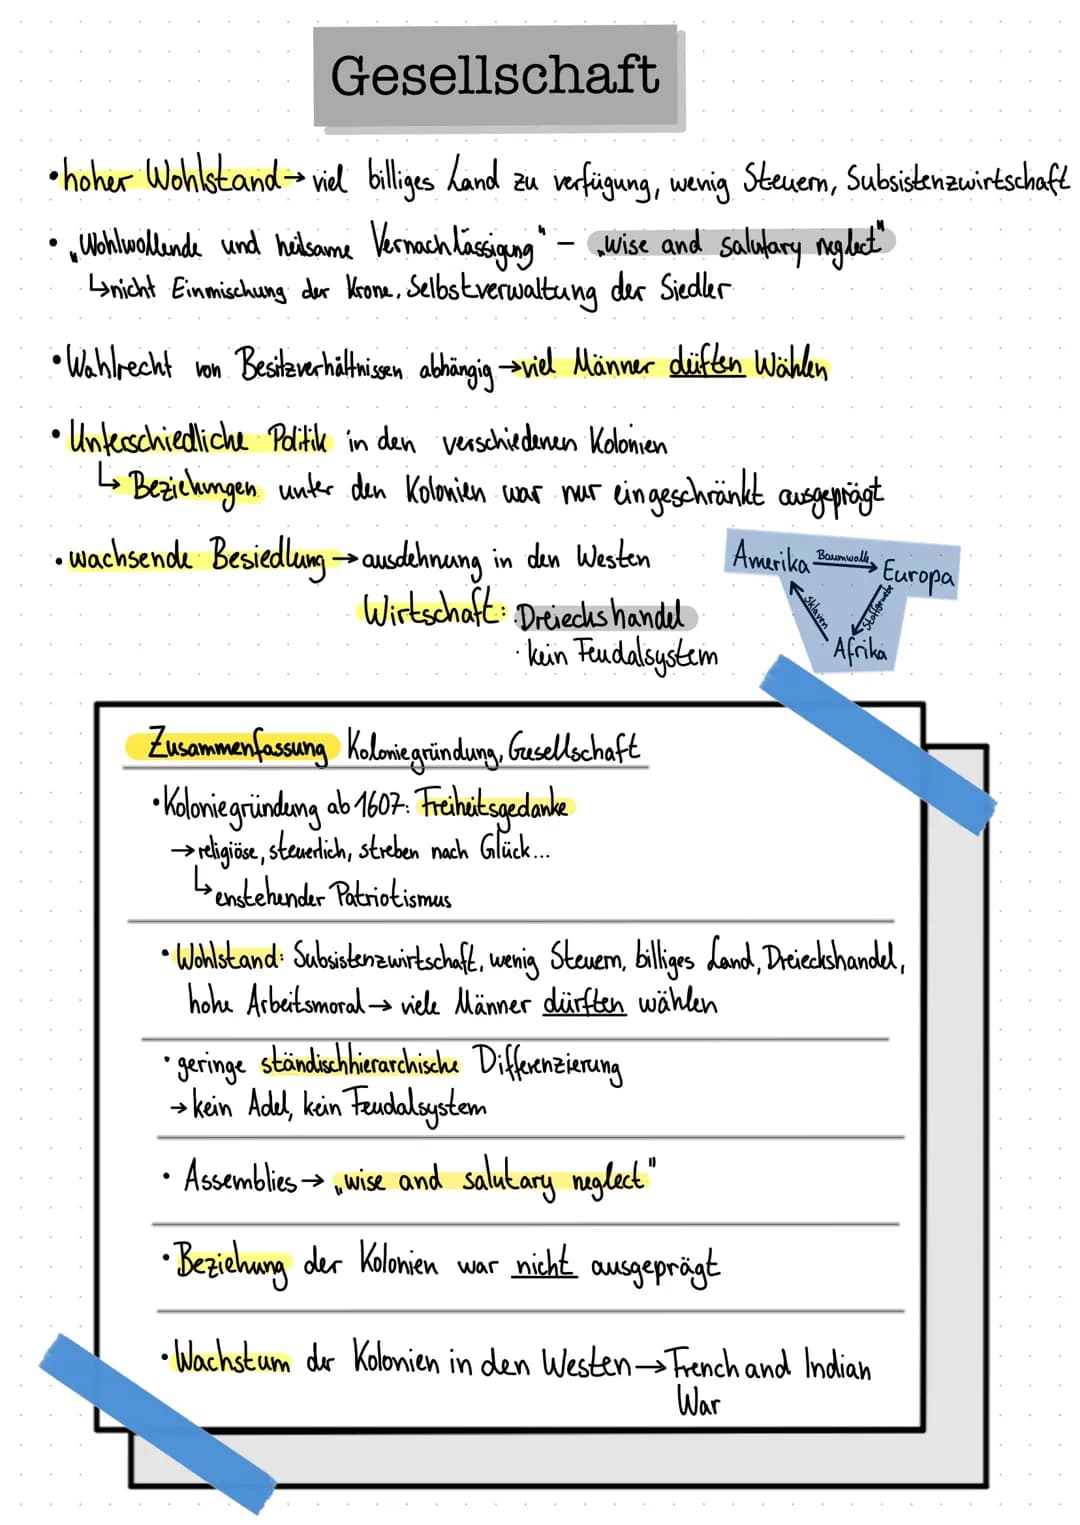 Gesellschaft
• hoher Wohlstand → viel billiges Land zu verfügung, wenig Steuern, Subsistenzwirtschaft
• „Wohlwollende und heilsame Vernachlässigung" – „wise and salutary neglect"
↳ nicht Einmischung der Krone, Selbstverwaltung der Siedler
• Wahlrecht von Besitzverhältnissen abhängig → viel Männer düften Wählen
• Unterschiedliche Politik in den verschiedenen Kolonien
↳ Beziehungen unter den Kolonien war nur eingeschränkt ausgeprägt
• wachsende Besiedlung → ausdehnung in den Westen
Wirtschaft: · Dreieckshandel
· kein Feudalsystem
Amerika Baumwolle → Europa
Sklaven Stoffgewebe
Afrika
Zusammenfassung Koloniegründung, Gesellschaft
• Koloniegründung ab 1607: Freiheitsgedanke
→ religiöse, steuerlich, streben nach Glück...
↳ enstehender Patriotismus
• Wohlstand: Subsistenzwirtschaft, wenig Steuern, billiges Land, Dreieckshandel,
hohe Arbeitsmoral → viele Männer dürften wählen
• geringe ständischhierarchische Differenzierung
→ kein Adel, kein Feudalsystem
• Assemblies → „wise and salutary neglect"
• Beziehung der Kolonien war nicht ausgeprägt
• Wachstum der Kolonien in den Westen → French and Indian
War